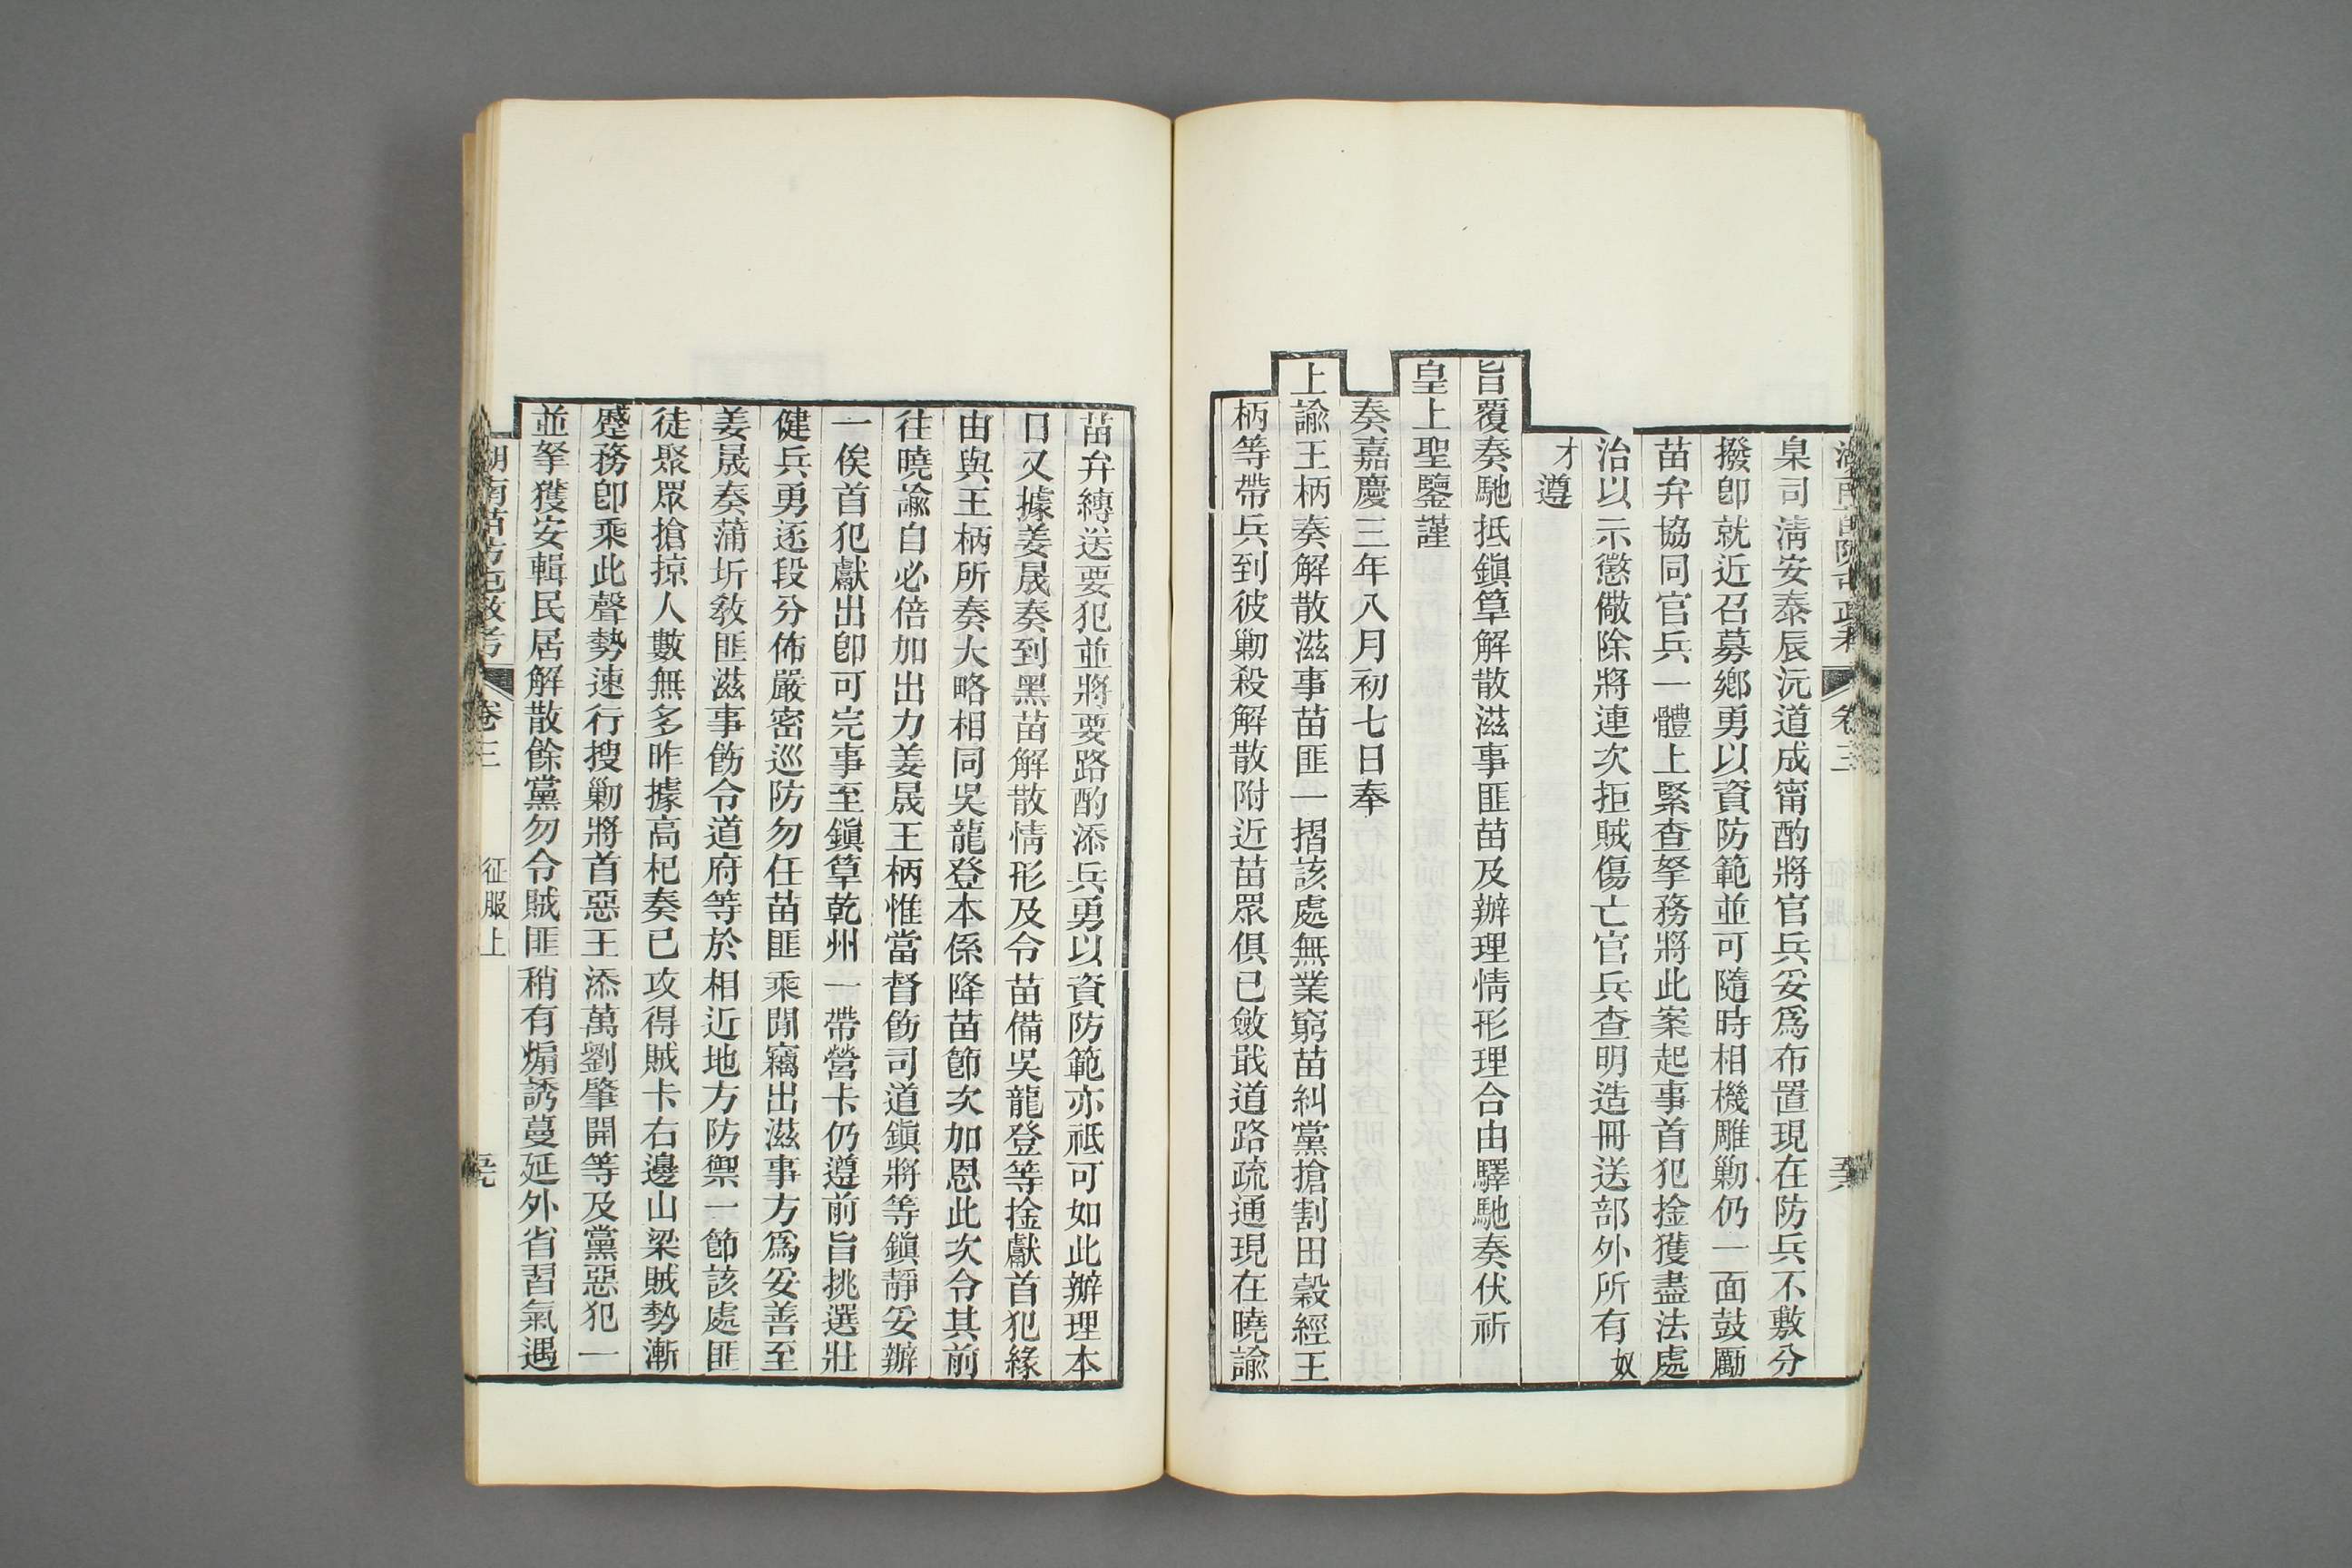 臬司清安泰辰沅道成甯酌將官兵妥爲布置現在防兵不敷分
撥卽就近召募鄉勇以資防範並可隨時相機雕勦仍一面鼓勵
苗弁協同官兵一體上緊查拏務將此案起事首犯捡獲盡法處
治以示懲儆除將連次拒賊傷亡官兵查明造冊送部外所有奴
才遵
旨覆奏馳抵鎭筸解散滋事匪苗及辦理情形理合由驛馳奏伏祈
皇上聖鑒謹
奏嘉慶三年八月初七日奉
上諭王柄奏解散滋事苗匪一摺該處無業窮苗糾黨搶割田穀經王
柄等帶兵到彼勦殺解散附近苗眾俱已斂戢道路疏通現在曉諭
苗弁縛送要犯並將要路酌添兵勇以資防範亦祗可如此辦理本
日又據姜晟奏到黑苗解散情形及令苗備吳龍登等捡獻首犯緣
由與王柄所奏大略相同吳龍登本係降苗節次加恩此次令其前
往曉諭自必倍加出力姜晟王柄惟當督飭司道鎭將等鎭靜妥辦
一俟首犯獻出卽可完事至鎭筸乾州一帶營卡仍遵前旨挑選壯
健兵勇逐段分佈嚴密巡防勿任苗匪乘閒竊出滋事方爲妥善至
姜晟奏蒲圻教匪滋事飭令道府等於相近地方防禦一節該處匪
徒聚眾搶掠人數無多昨據高杞奏已攻得賊卡右邊山梁賊勢漸
蹙務卽乘此聲勢速行搜勦將首惡王添萬劉肇開等及黨惡犯一
並拏獲安輯民居解散餘黨勿令賊匪稍有煽誘蔓延外省習氣遇
湖南苗防屯政考 卷三 征服上